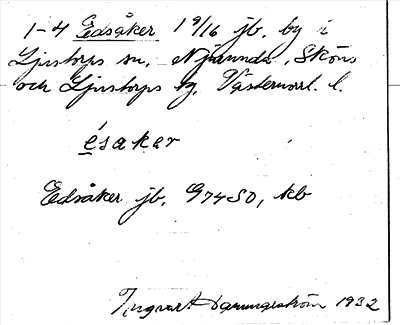 1-4 Edsåker 1 9/16 jb. by i
Ljustorps sn, Njurunda, Sköns
och Ljustorps tg, Västernorrl. l.
ésaker
Edsåker jb, G74SO, kb
Ingvart 1932